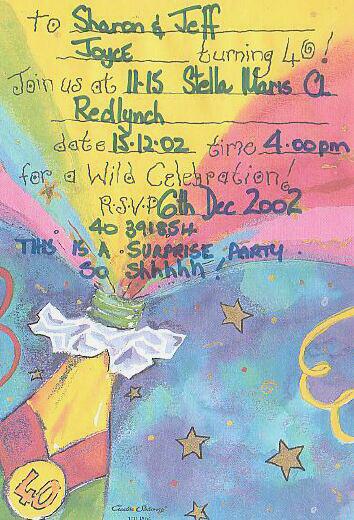 to Sharon & Jeff
Joyce turning 40!
Join us at 11-15 Stella Maris Cl
Redlynch
date 15.12.02 time 4.00pm
for a Wild Celebration!
R.S.V.P 6th Dec 2002
40 391854
THIS IS A SURPRISE PARTY.
So Shhhhh!
40